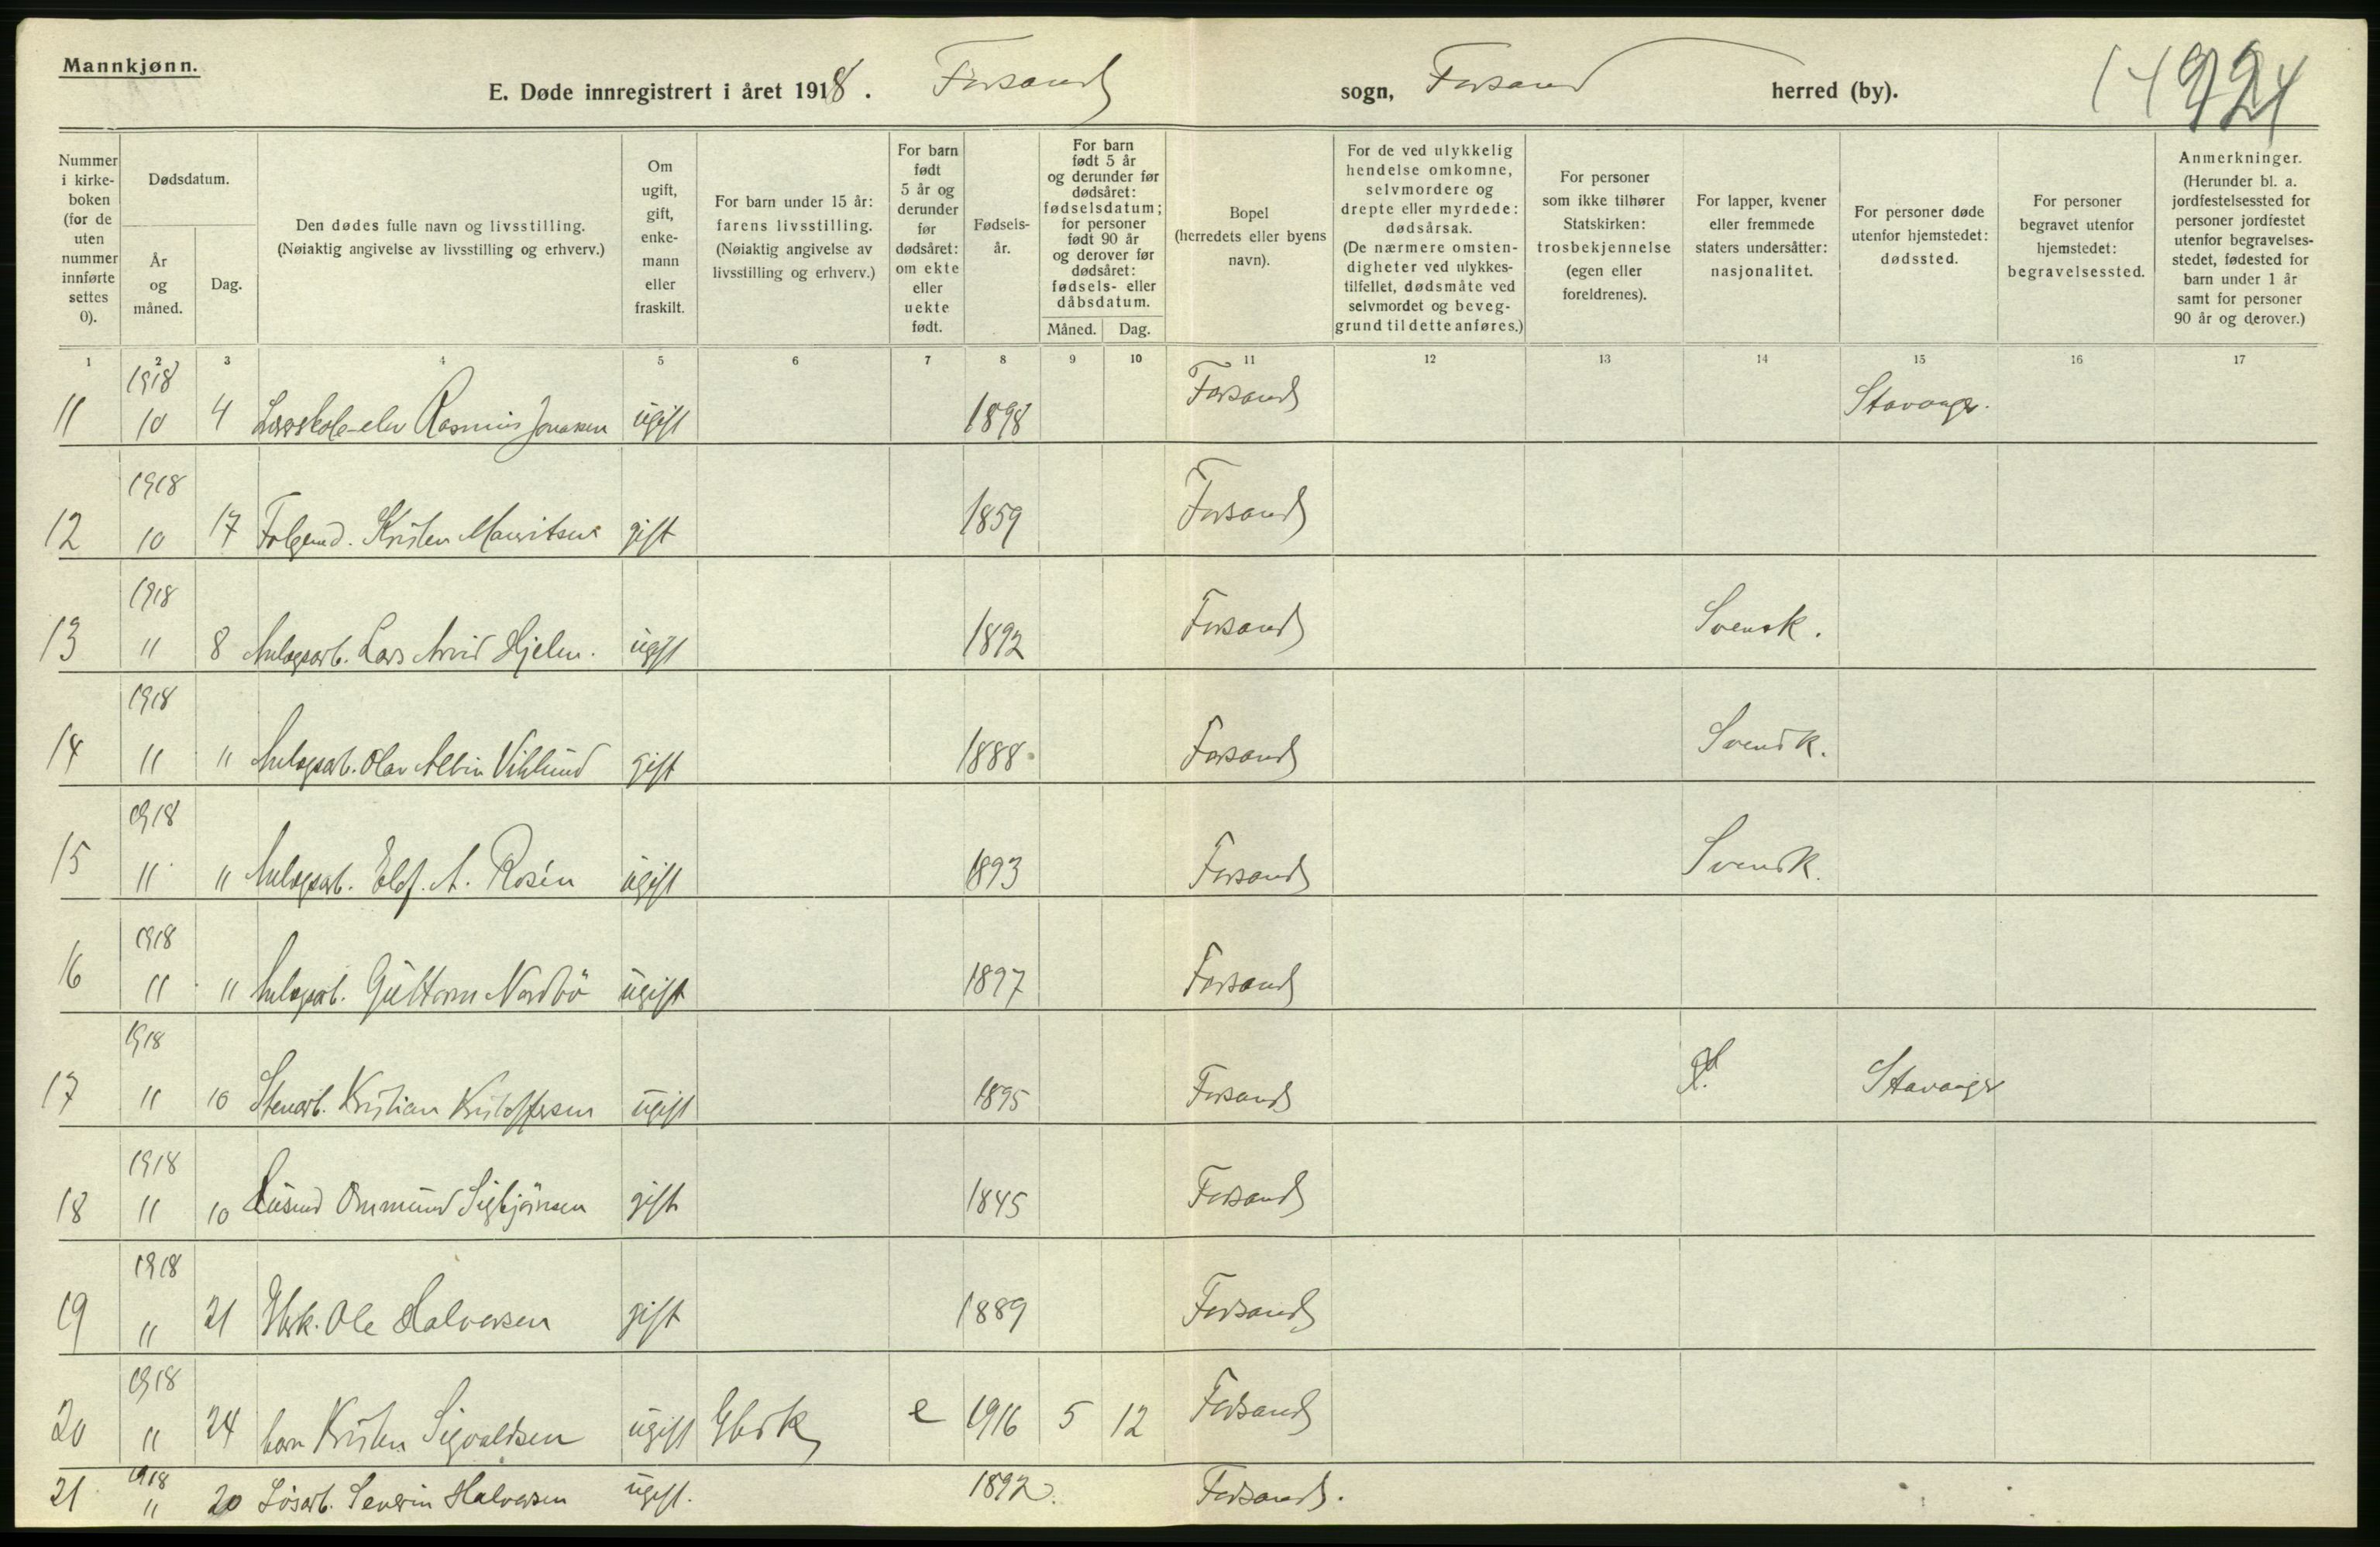 Mannkjønn.
E. Døde innregistrert i året 1918. Forsand sogn, Forsand herred (by).
Nummer i kirke-boken (for de uten nummer innførte settes 0).
Dødsdatum.
År og måned.
Dag.
Den dødes fulle navn og livsstilling.
(Nøiaktig angivelse av livsstilling og erhverv.)
Om ugift, gift, enke-mann eller fraskilt.
For barn under 15 år: farens livsstilling.
(Nøiaktig angivelse av livsstilling og erhverv.)
For barn født 5 år og derunder før dødsåret: om ekte eller uekte født.
Fødsels-år.
For barn født 5 år og derunder før dødsåret: fødselsdatum; for personer født 90 år og derover før dødsåret: fødsels- eller dåbsdatum.
Måned. Dag.
Bopel (herredets eller byens navn).
For de ved ulykkelig hendelse omkomne, selvmordere og drepte eller myrdede: dødsårsak.
(De nærmere omsten-digheter ved ulykkes-tilfellet, dødsmåte ved selvmordet og beveg-grund til dette anføres.)
For personer som ikke tilhører Statskirken: trosbekjennelse (egen eller foreldrenes).
For lapper, kvener eller fremmede staters undersåtter: nasjonalitet.
For personer døde utenfor hjemstedet: dødssted.
For personer begravet utenfor hjemstedet: begravelsessted.
Anmerkninger.
(Herunder bl. a. jordfestelsessted for personer jordfestet utenfor begravelses-stedet, fødested for barn under 1 år samt for personer 90 år og derover.)
1 2 3 4 5 6 7 8 9 10 11 12 13 14 15 16 17
11 1918 10 4 Rasmus Jonassen ugift 1898 Forsand Stavanger.
12 1918 10 17 Folgemd. Kristen Mauritsen gift 1859 Forsand
13 1918 11 8 Anlegsarb. Lars Arvid Hjelm. ugift 1892 Forsand Svensk.
14 1918 11 " Anlegsarb. Olav Albin Viklund gift 1888 Forsand Svensk.
15 1918 11 " Anlegsarb. Elof. A. Rosén ugift 1893 Forsand Svensk.
16 1918 11 " Anlegsarb. Guttorm Nordbö ugift 1897 Forsand
17 1918 11 10 Stenarb. Kristian Kristoffersen ugift 1895 Forsand Stavanger
18 1918 11 10 Husmd Ommund Sigbjörnsen gift 1845 Forsand
19 1918 11 21 Gbrk. Ole Halvorsen gift 1889 Forsand
20 1918 11 24 barn Kristen Sigvaldsen ugift Gbrk e 1916 5 12 Forsand
21 1918 11 20 Lösarb. Severin Halvorsen ugift. 1892. Forsand.